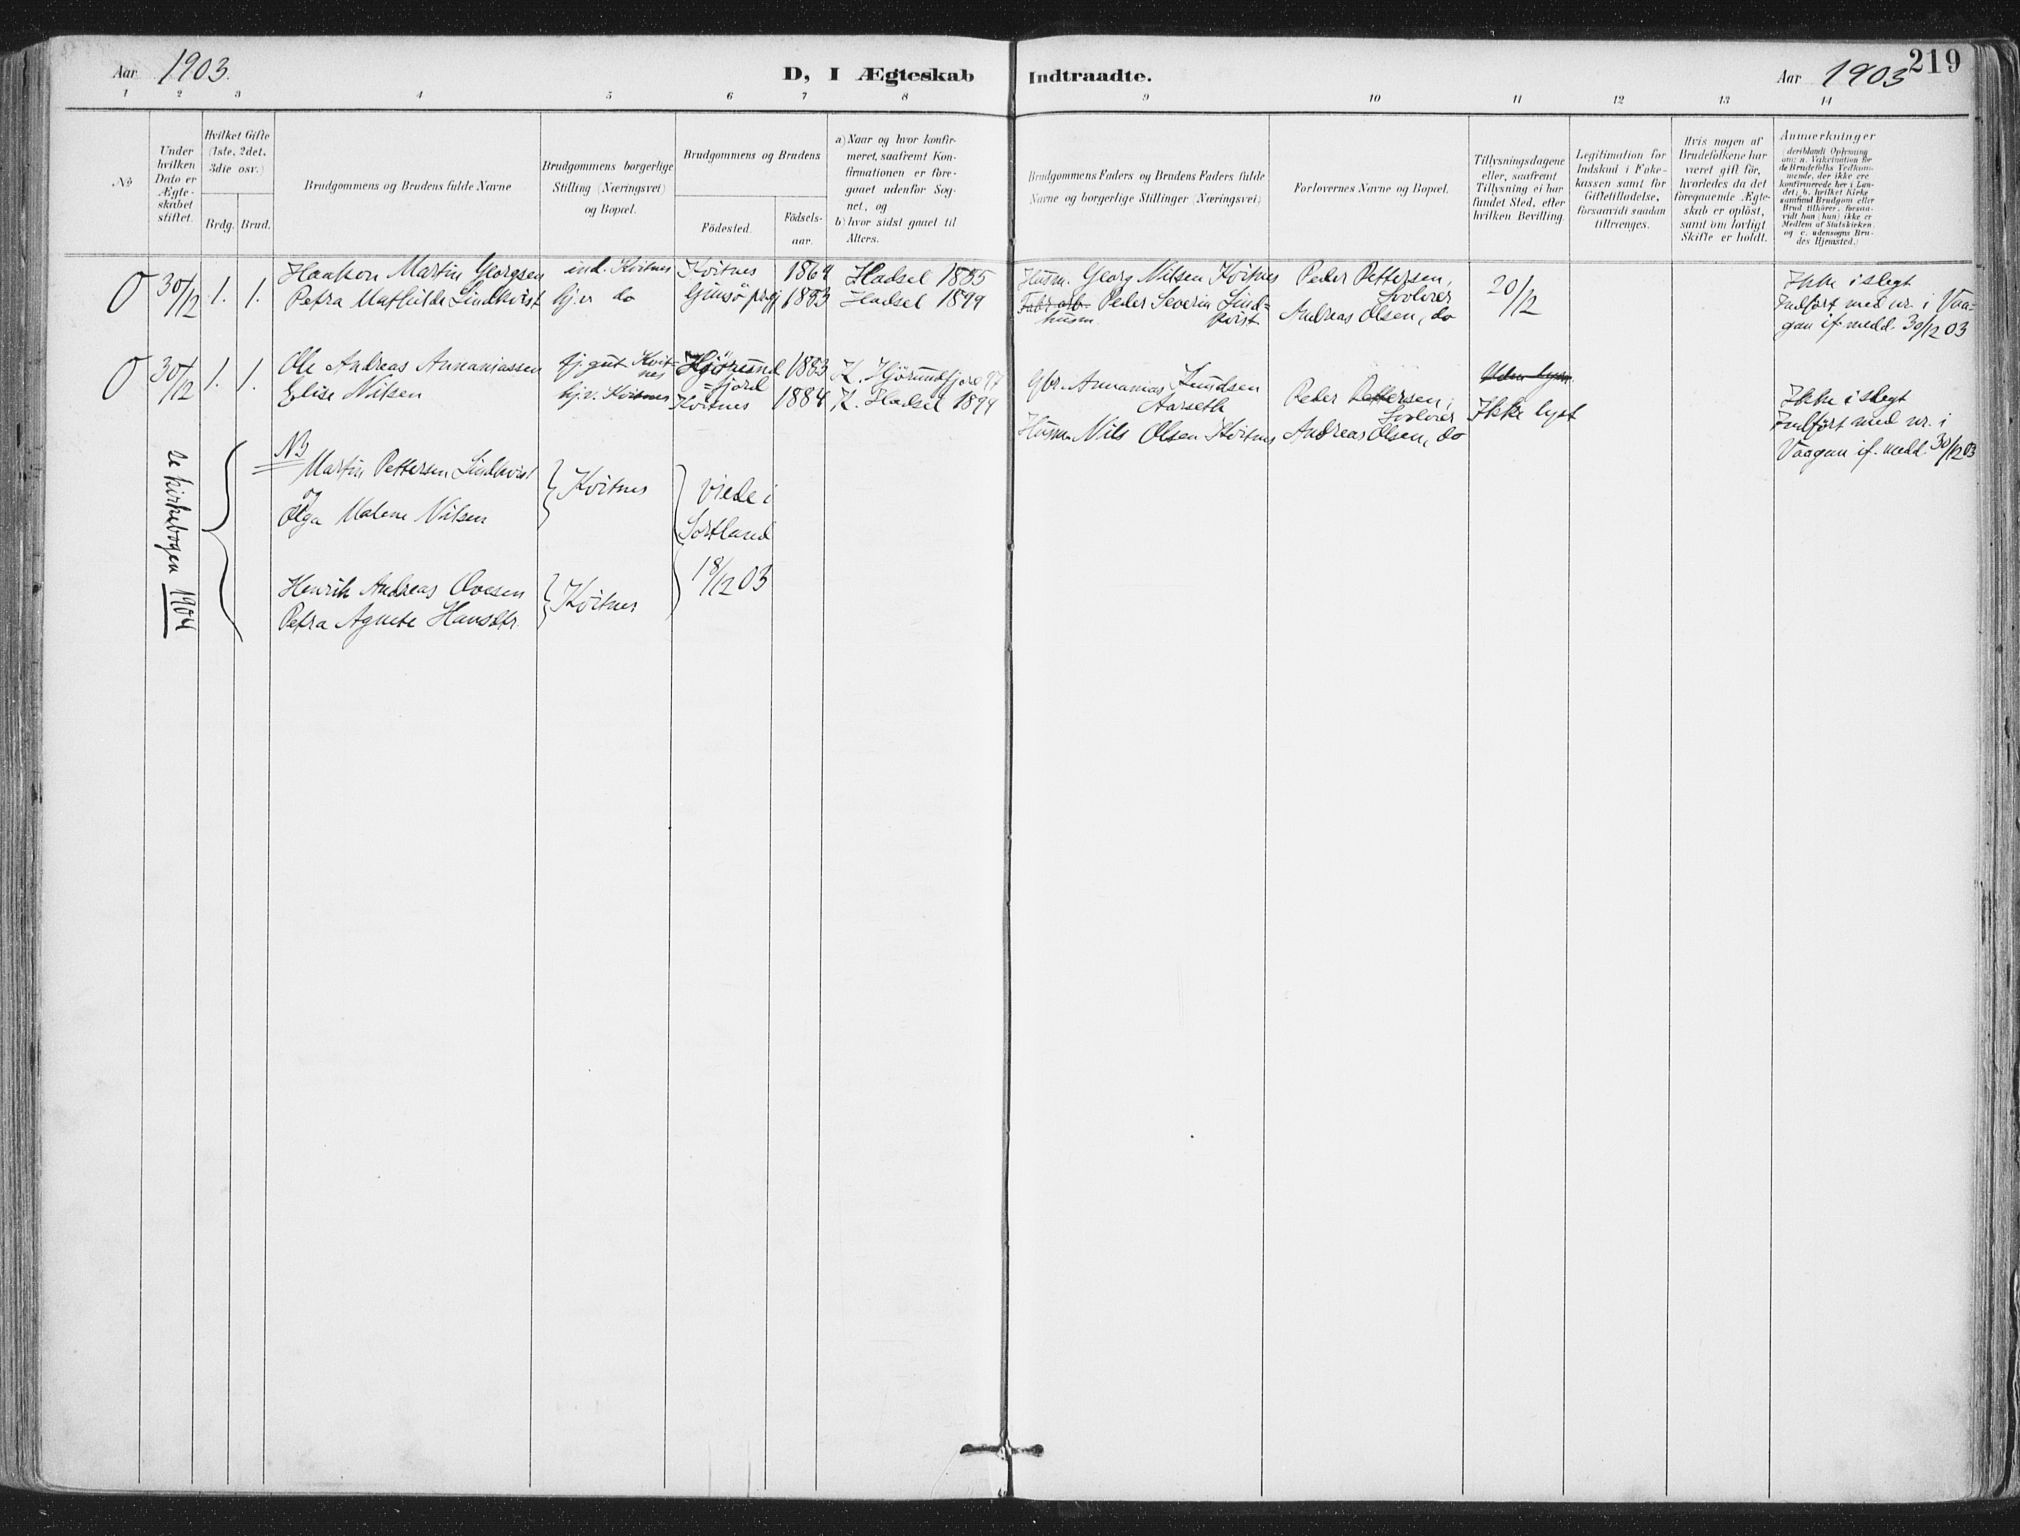 Aar 1903.
D, I Ægteskab Indtraadte.
Aar 1903
219
1 2 3 4 5 6 7 8 9 10 11 12 13 14
No
Under hvilken Dato er Ægteskabet stiftet.
Hvilket Gifte (1ste, 2det, 3die osv.)
Brdg. Brud.
Brudgommens og Brudens fulde Navne
Brudgommens borgerlige Stilling (Næringsvei) og Bopæl.
Brudgommens og Brudens
Fødested.
Fødsels-aar.
a) Naar og hvor konfir-
meret, saafremt Kon-
firmationen er fore-
gaaet udenfor Sog-
net, og
b) hvor sidst gaaet til
Alters.
Brudgommens Faders og Brudens Faders fulde
Navne og borgerlige Stillinger (Næringsvei)
Forlovernes Navne og Bopæl.
Tillysningsdagene
eller, saafremt
Tillysning ei har
fundet Sted, efter
hvilken Bevilling.
Legitimation for
Indskud i Enke-
kassen samt for
Giftetilladelse,
forsaavidt saadan
tiltrænges.
Hvis nogen af
Brudefolkene har
været gift før,
hvorledes da det
foregaaende Ægte-
skab er opløst,
samt om lovligt
Skifte er holdt.
Anmerkninger
(deriblandt Oplysning
om: a. Vakcination for
de Brudefolks Vedkom-
mende, der ikke ere
konfirmerede her i Lan-
det; b. hvilket Kirke-
samfund Brudgom eller
Brud tilhører, forsaa-
vidt han (hun) ikke er
Medlem af Statskirken,
og c. udensogns Bru-
des Hjemsted.)
O 30/12 1. 1. Haakon Martin Georgsen ind. Kvitnes Kvitnes 1864 Hadsel 1885 Husm. Georg Nilsen Kvitnes Peder Pettersen, Svolvær 20/12 Ikke i slegt
Petra Mathilde Lindkvist hj. v. do Gimsø prgj 1883 Hadsel 1899 Fabr arb. Peder Severin Lind-
husm. kvist Andreas Olsen, do Indført med nr. i Vaa-
gan if. medd. 30/12 03
O 30/12 1. 1. Ole Andreas Annaniassen tj. gut Kvit-
nes Hjørund-
fjord 1883 K. Hjørundfjord 97 Gbr. Annanias Knudsen
Aarseth Peder Pettersen, Svolvær Uden lysn. Ikke lyst Ikke i slegt
Elise Nilsen hj. v. Kvitnes Kvitnes 1884 K. Hadsel 1899 Husm. Nils Olsen Kvitnes Andreas Olsen, do Indført med nr. i
Vaagan if. medd. 30/12 03
NB
Martin Pettersen Lindkvist
og
Olga Malene Nilsen
Kvitnes
viede i
Sortland
18/12 03
Henrik Andreas Ovesen
Petra Agnete Hansdtr.
Kvitnes
se kirkebogen 1904